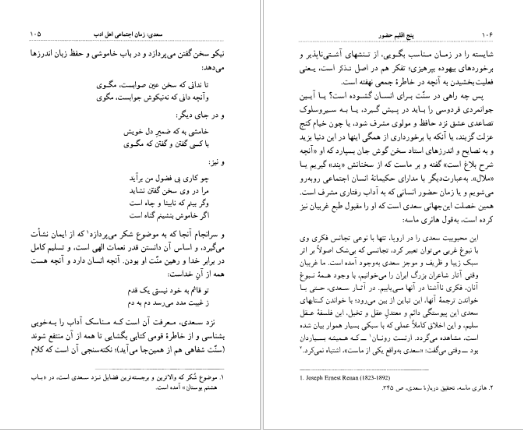 سعدی: زمان اجتماعی اهل ادب ۱۰۵
نیکو سخن گفتن می‌پردازد و در باب خاموشی و حفظ زبان اندرزها
می‌دهد:
تا ندانی که سخن عین صوابست، مگوی
وآنچه دانی که نه‌نیکوش جوابست، مگوی
و در جای دیگر:
خامشی به که ضمیر دل خویش
با کسی گفتن و گفتن که مگوی
و نیز:
چو کاری بی فضول من برآید
مرا در وی سخن گفتن نشاید
وگر بینم که نابینا و چاه است
اگر خاموش بنشینم گناه است
و سرانجام آنجا که به موضوع شکر می‌پردازد¹ که از ایمان نشأت
می‌گیرد، و اساس آن دانستن قدر نعمات الهی است، و تسلیم کامل
در برابر خدا و رهین منّت او بودن. آنچه انسان دارد و آنچه هست
همه از آن خداست:
تو قائم به خود نیستی یک قدم
ز غیبت مدد می‌رسد دم به دم
نزد سعدی، معرفت آن است که مناسک آداب را به‌خوبی
بشناسی و از خطاهٔ قومی کتابی بگشایی تا همه از آن منتفع شوند
(سنّت شفاهی هم از همین‌جا می‌آید)؛ نکته‌سنجی آن است که کلام
۱. موضوع شکر که والاترین و برجسته‌ترین فضایل نزد سعدی است، در «باب
هشتم بوستان» آمده است.
۱۰۶ پنج اقلیم حضور
شایسته را در زمان مناسب بگویی، از تنشهای آشتی‌ناپذیر و
برخوردهای بیهوده بپرهیزی؛ تفکر هم در اصل تذکر است، یعنی
فعلیت‌بخشیدن به آنچه در خاطرهٔ جمعی نهفته است.
پس چه راهی در سنّت برای انسان گشوده است؟ یا آیین
جوانمردی فردوسی را باید در پیش گیرد، یا به سیروسلوک
تصاعدی عشق نزد حافظ و مولوی مشرف شود، یا چون خیام کنج
عزلت گزیند، یا آنکه با برخورداری از همگی اینها در این دنیا بزید
و به نصایح و اندرزهای استاد سخن گوش جان بسپارد که او «آنچه
شرح بلاغ است» گفته و بر ماست که از سخنانش «پند» گیریم یا
«ملال». به‌عبارت‌دیگر با مدارای حکیمانهٔ انسان اجتماعی روبه‌رو
می‌شویم و با زمان حضور انسانی که به آداب رفتاری مشرف است.
همین خصلت این‌جهانی سعدی است که او را مقبول طبع غربیان نیز
کرده است، به‌قول هانری ماسه:
این محبوبیت سعدی را در اروپا، تنها با نوعی تجانس فکری وی
با نبوغ غربی می‌توان تعبیر کرد. تجانسی که بی‌شک اصولاً بر اثر
سبک زیبا و ظریف و موجز سعدی به‌وجود آمده است. ما غربیان
وقتی آثار شاعران بزرگ ایران را می‌خوانیم، با وجود همهٔ نبوغ
آنان، فکری ناآشنا در آنها می‌یابیم. در آثار سعدی، حتی با
خواندن ترجمهٔ آنها، این نیاز از بین می‌رود: با خواندن کتابهای
سعدی این پیوستگی دائم و معتدل عقل و تخیل، این فلسفهٔ عقل
سلیم، و این اخلاق کاملاً عملی که با سبکی بسیار هموار بیان شده
است، مشاهده می‌گردد. ارنست رونان¹ ــ که همیشه بسیاردان
بود ــ وقتی می‌گفت: «سعدی به‌واقع یکی از ماست»، اشتباه نمی‌کرد.²
1. Joseph Ernest Renan (1823-1892)
۲. هانری ماسه، تحقیق دربارهٔ سعدی، ص ۳۴۵.